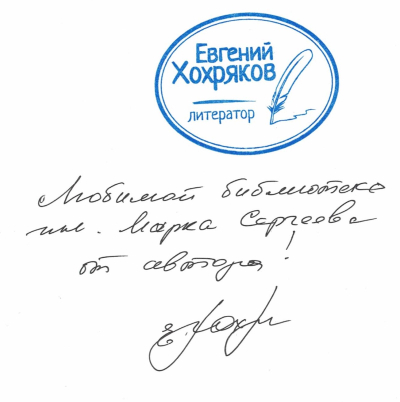 Евгений
Хохряков
литератор
Любимой библиотеке
им. Марка Сергеева
от автора!